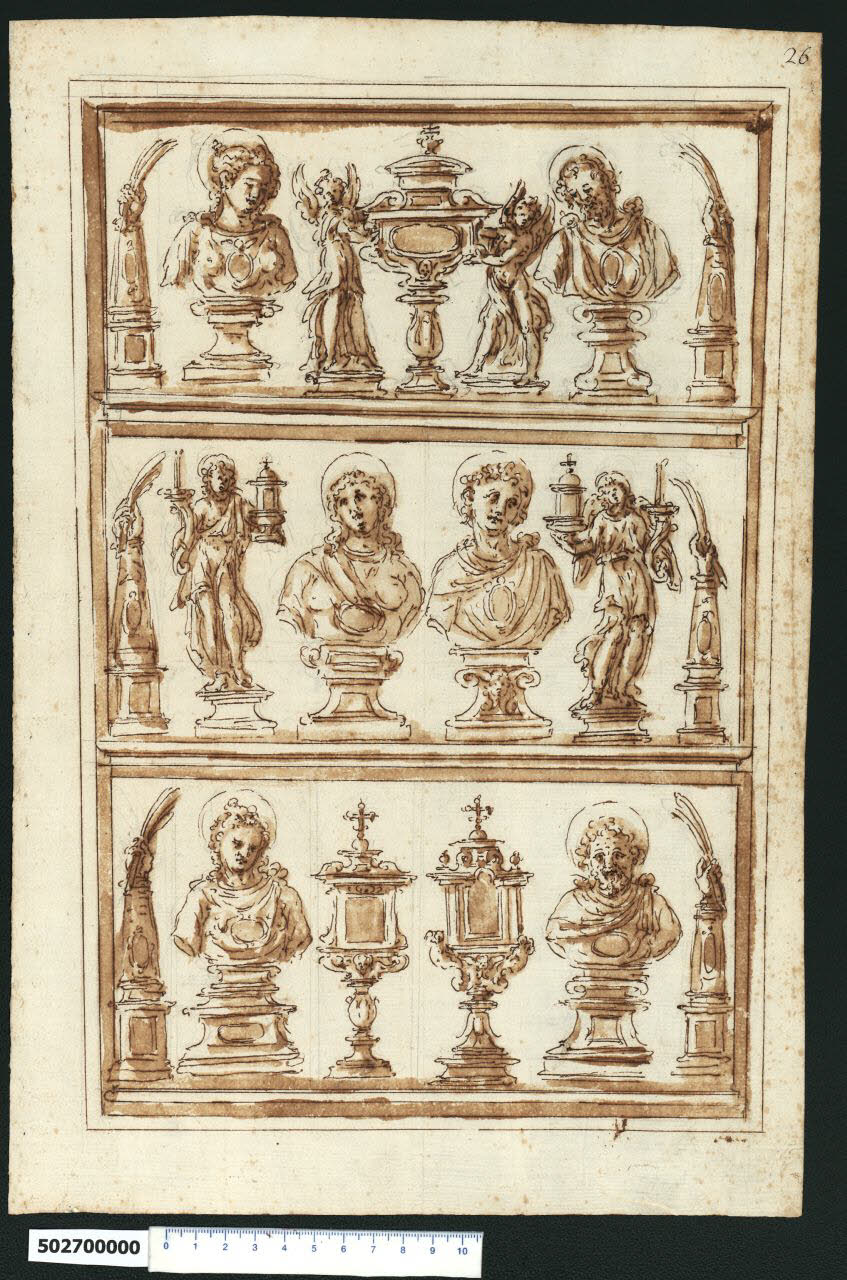 26
502700000
0 1 2 3 4 5 6 7 8 9 10